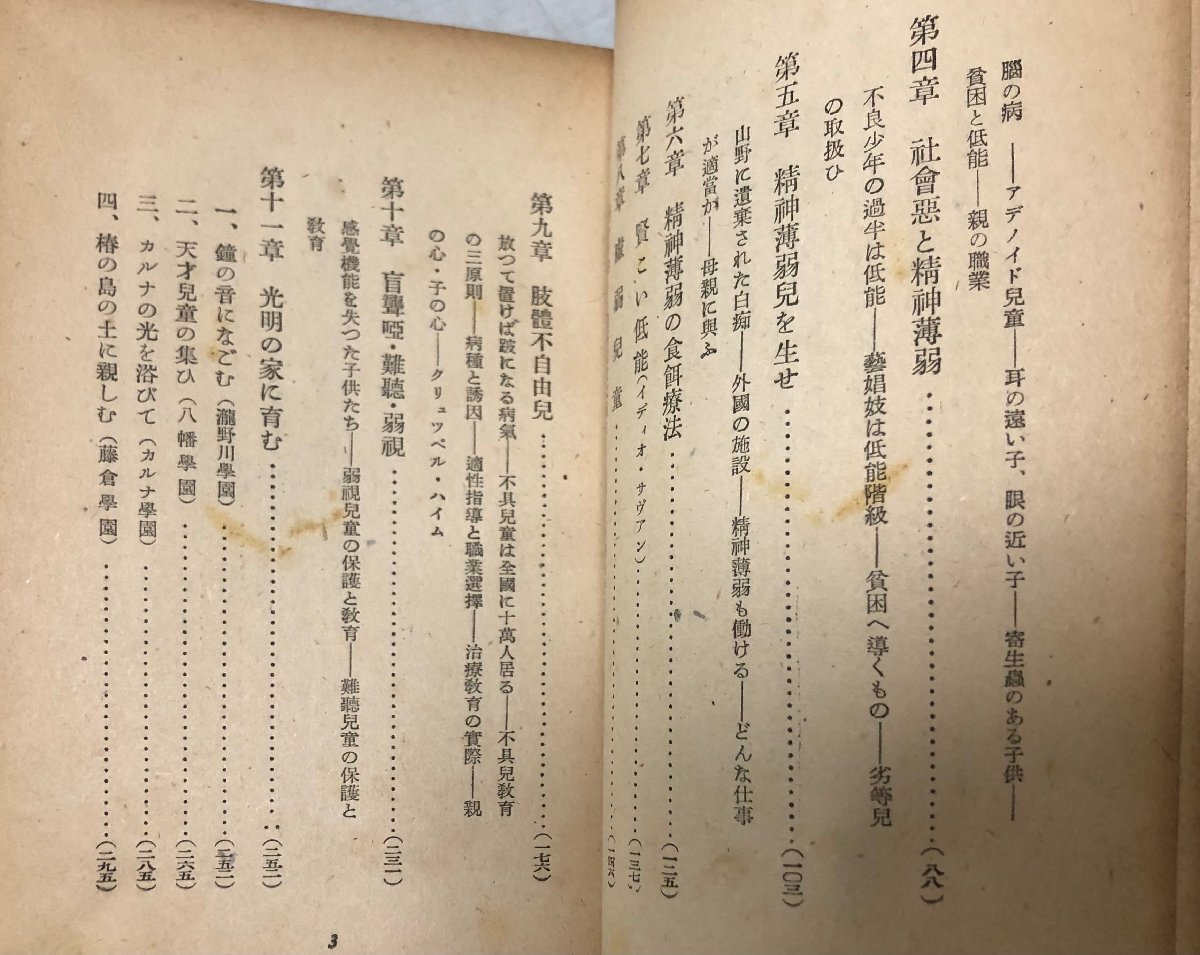 腦の病――アデノイド兒童――耳の遠い子、眼の近い子――寄生蟲のある子供――
貧困と低能――親の職業
第四章　社會惡と精神薄弱…………(八八)
不良少年の過半は低能――藝娼妓は低能階級――貧困へ導くもの――劣等兒
の取扱ひ
第五章　精神薄弱兒を生せ…………(一〇三)
山野に遺棄された白痴――外國の施設――精神薄弱も働ける――どんな仕事
が適當か――母親に與ふ
第六章　精神薄弱の食餌療法…………(一二五)
第七章　賢こい低能(イディオ・サヴアン)…………(一三七)
第八章　虛弱兒童…………(一四六)
第九章　肢體不自由兒…………(一七六)
放つて置けば跛になる病氣――不具兒童は全國に十萬人居る――不具兒敎育
の三原則――病種と誘因――適性指導と職業選擇――治療敎育の實際――親
の心・子の心――クリュツペル・ハイム
第十章　盲聾啞・難聽・弱視…………(二三一)
感覺機能を失つた子供たち――弱視兒童の保護と敎育――難聽兒童の保護と
敎育
第十一章　光明の家に育む…………(二五二)
一、鐘の音になごむ(瀧野川學園)…………(二五二)
二、天才兒童の集ひ(八幡學園)…………(二六五)
三、カルナの光を浴びて(カルナ學園)…………(二八五)
四、椿の島の土に親しむ(藤倉學園)…………(二九五)
3